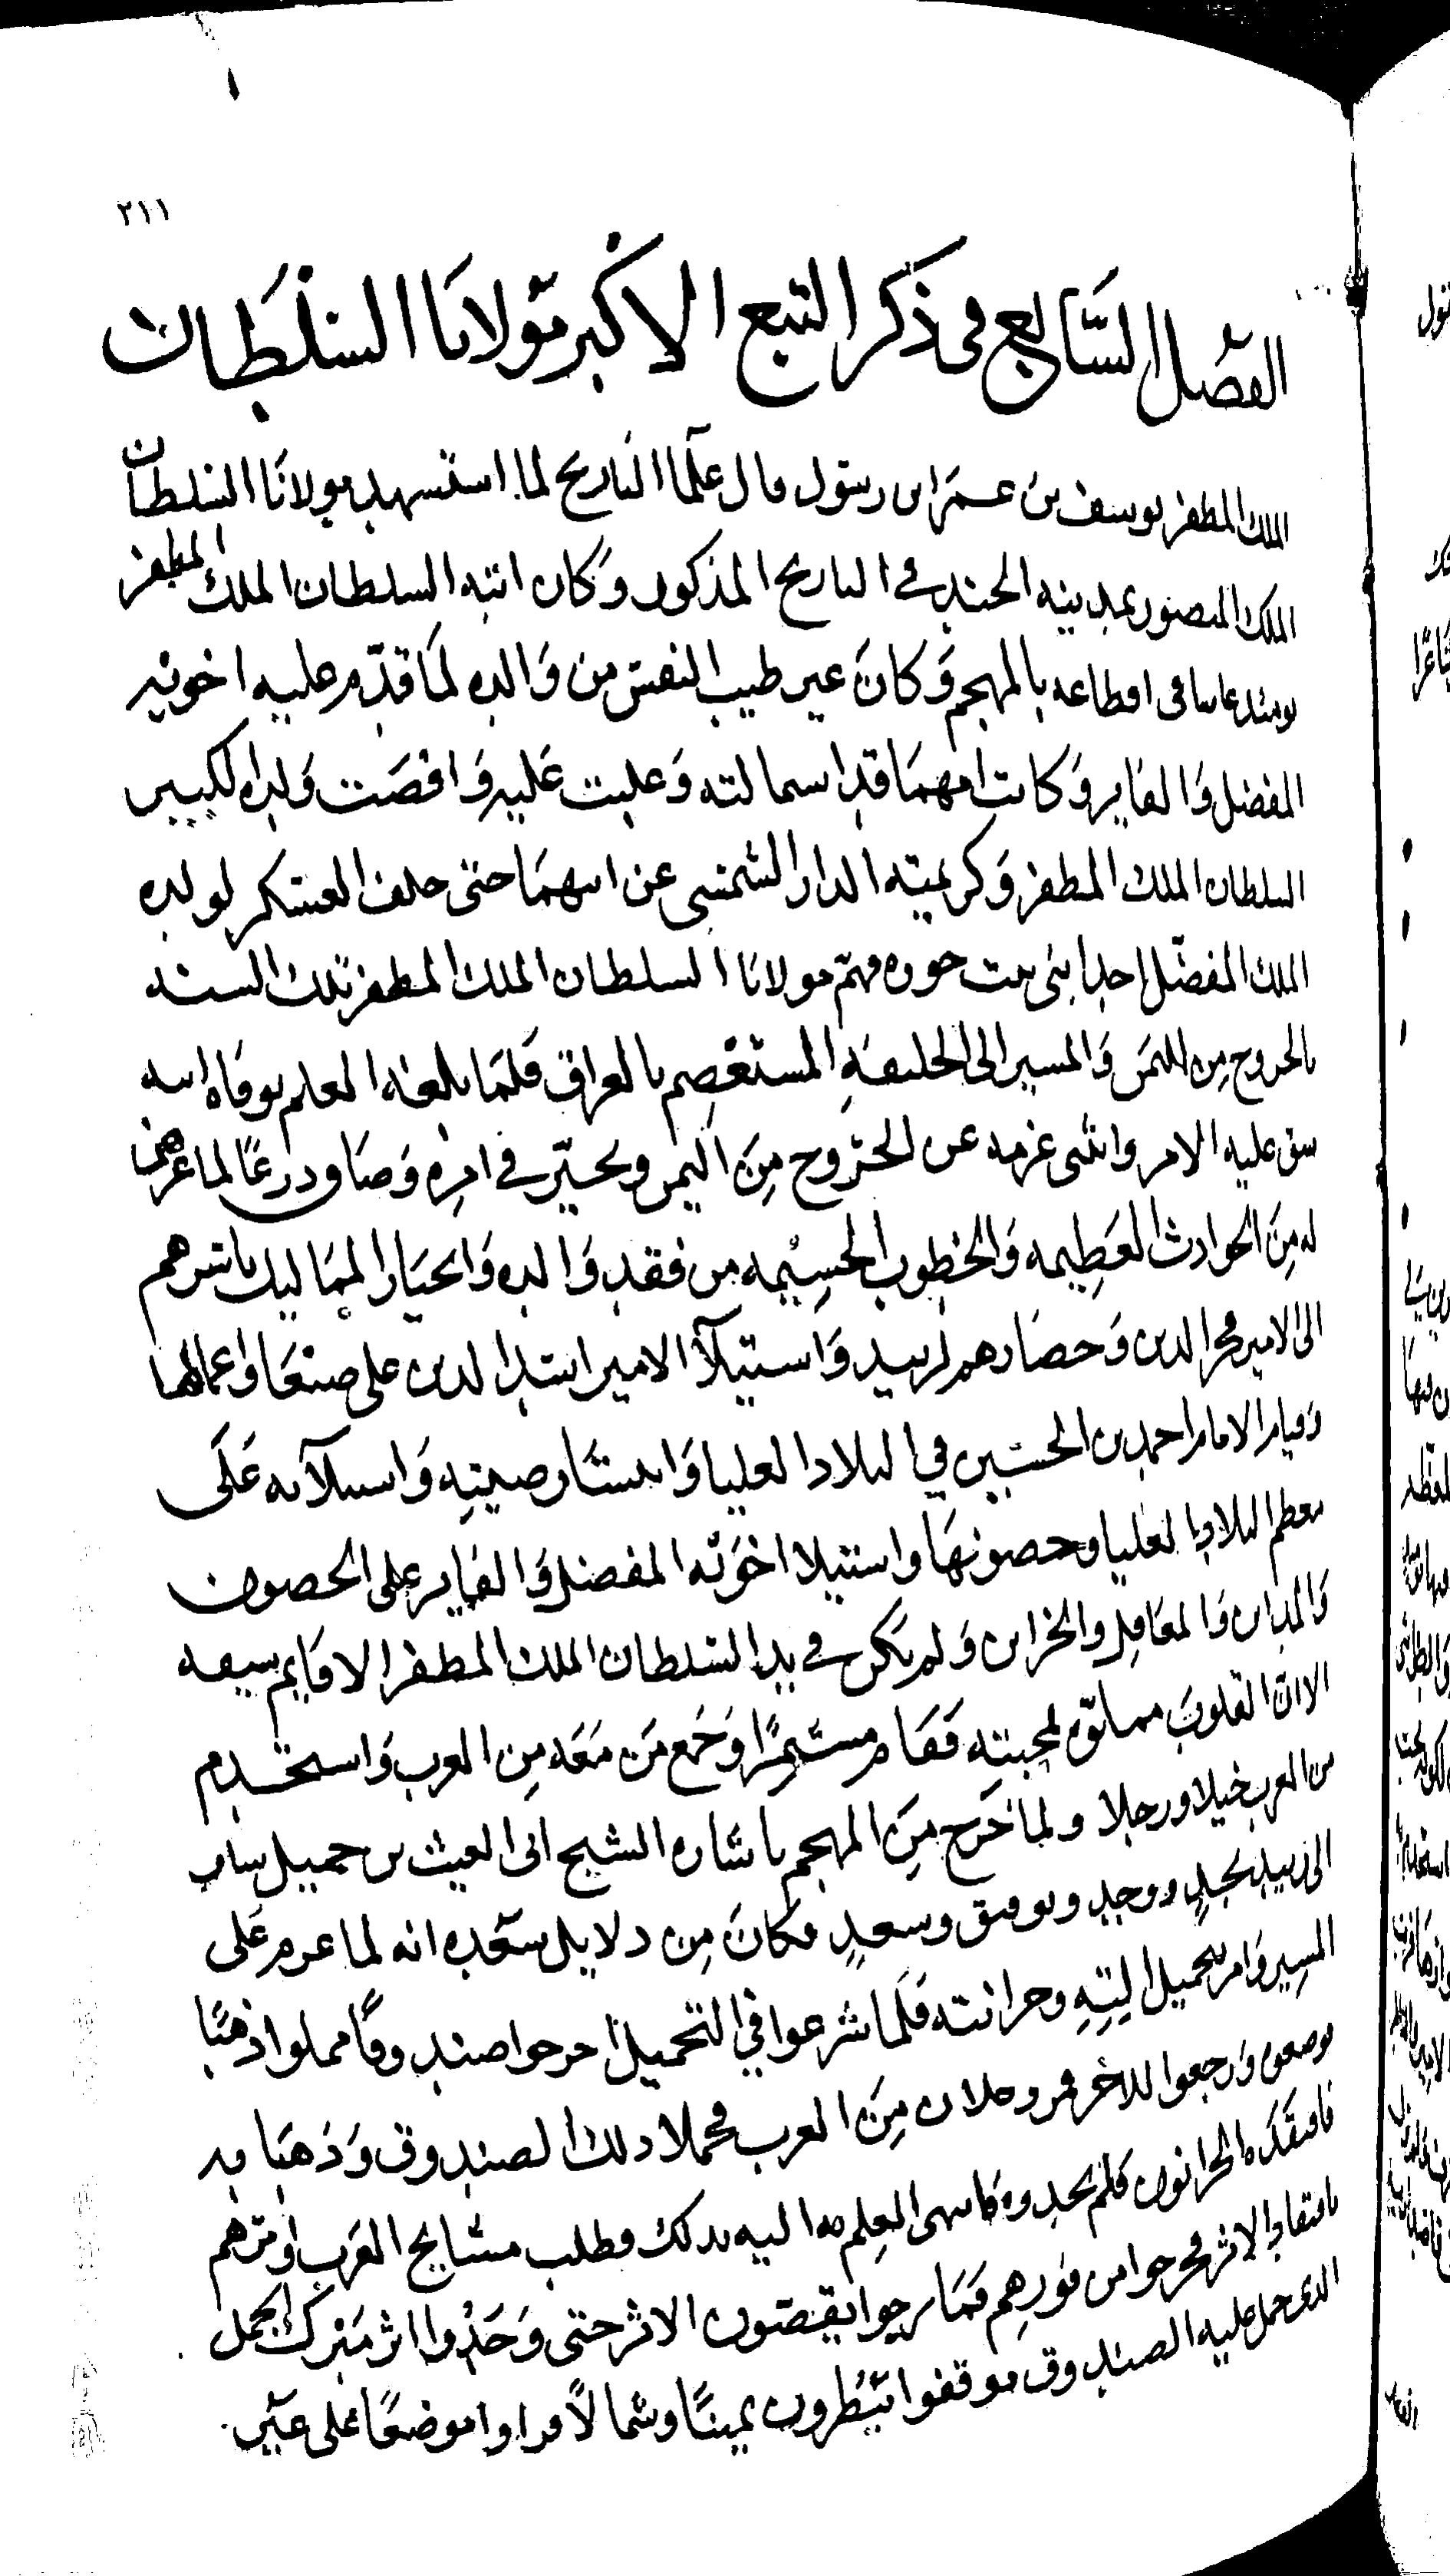 ٢١١
الفصل السابع في ذكر التبع الاكبر مولانا السلطان
الملك المظفر يوسف بن عمر ابن رسول قال علما التاريخ لما استشهد مولانا السلطان
الملك المنصور بمدينه الجند في التاريخ المذكور وكان ابنه السلطان الملك المظفر
يومئذ غايبا في اقطاعه بالمهجم وكان غير طيب النفس من والده لما قدم عليه اخويه
المفضل والفايز وكانت امهما قد استمالته وغلبت عليه واقصت ولده الكبير
السلطان الملك المظفر وكريمته الدار الشمسي عن ابيهما حتى حلف العسكر لولده
الملك المفضل احد ابني بنت حوزه فهم مولانا السلطان الملك المظفر تلك السنه
بالخروج من اليمن والمسير الى الخليفة المستعصم بالعراق فلما بلغه العلم بوفاة ابيه
شق عليه الامر وانثنى عزمه عن الخروج من اليمن وتحير في امره وضاق ذرعا لما عرض
له من الحوادث العظيمه والخطوب الجسيمه من فقد والده وانحياز المماليك باسرهم
الى الامير فخر الدين وحصارهم لزبيد واستيلآ الامير اسد الدين على صنعا واعمالها
وقيام الامام احمد بن الحسين في البلاد العليا وانتشار صيته واستيلآيه على
معظم البلاد العليا وحصونها واستيلا اخوته المفضل والفايز على الحصون
والمداين والمعاقل والخزاين ولم يكن في يد السلطان الملك المظفر الا قايم سيفه
الا ان القلوب مملوة بمحبته فقام مشمرا وجمع من معه من العرب واستخدم
من العرب خيلا ورجلا ولما خرج من المهجم باشارة الشيخ ابى الغيث بن جميل سار
الى زبيد بجد ووجد وتوفيق وسعد فكان من دلايل سعده انه لما عزم على
المسير وامر بتحميل اليته وخزانته فلما شرعوا في التحميل اخرجوا صندوقا مملوا ذهبا
فوضعوه ورجعوا للاخر فمر رجلان من العرب فحملا ذلك الصندوق وذهبا به
فافتقده الخزانون فلم يجدوه فانهى العلم اليه بذلك فطلب مشايخ العرب وامرهم
بافتقاد الاثر فخرجوا من فورهم فما برحوا يقصون الاثر حتى وجدوا اثر مبرك الجمل
الذي حمل عليه الصندوق فوقفوا ينظرون يمينا وشمالا فراوا موضعا على غير